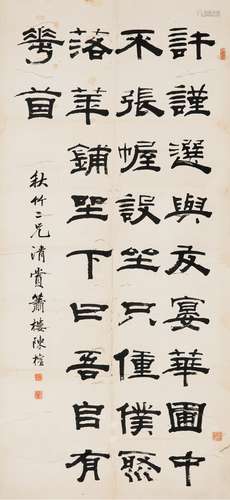 許謹選與友宴華圃中
不張幄設坐只僮僕聚
落華鋪坐下曰吾自有
華茵
秋竹二兄清賞 簫樓陳楦